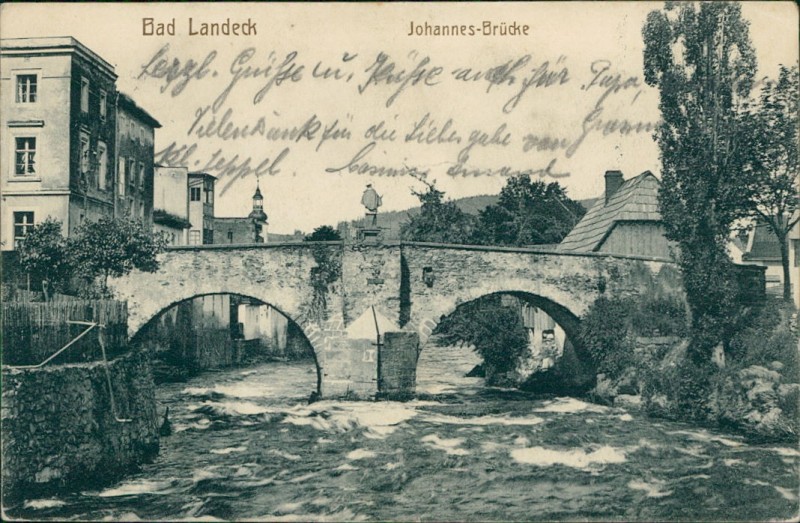 Bad Landeck
Johannes-Brücke
Herzl. Grüße u. Küße auch für Papa,
Vielen Dank für die Liebesgabe von
kl. Seppel.